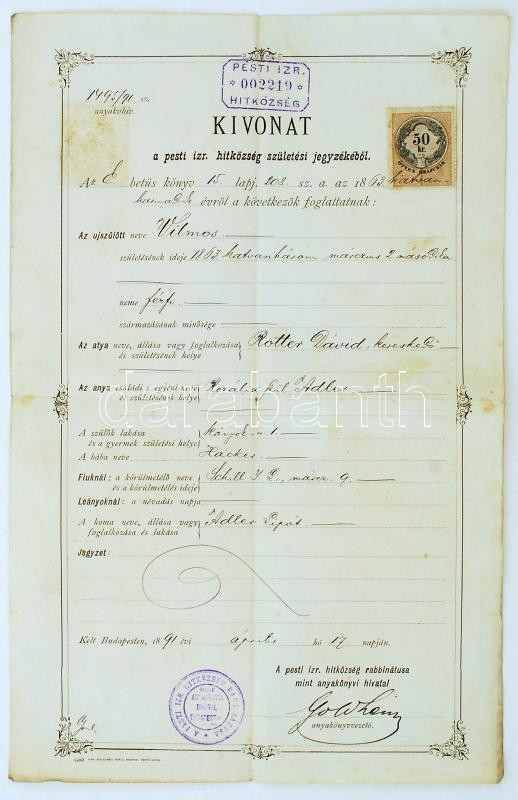 PESTI IZR.
* 002219 *
HITKÖZSÉG
1495/91 sz.
anyakvhiv.
50
kr.
KIVONAT
a pesti izr. hitközség születési jegyzékéből.
Az E betüs könyv 15 lapj. 208. sz. a. az 1863 hatvan-
harmadik évről a következők foglaltatnak:
Az ujszülött neve Vilmos
születésének ideje 1863 hatvanhárom márczius 2 másodika
neme férfi
származásának minősége
Az atya neve, állása vagy foglalkozása
és születésének helye Rotter Dávid, kereskedő
Az anya családi s egyéni neve
és születésének helye Rozália szül. Adler
A szülők lakása
és a gyermek születési helye Könyök-u 1.
A bába neve Hacker
Fiuknál: a körülmetélő neve
és a körülmetélés ideje Schill S. L., márcz. 9.
Leányoknál: a névadás napja
A koma neve, állása vagy
foglalkozása és lakása Adler Lipót.
Jegyzet:
Kelt Budapesten, 1891 évi április hó 17 napján.
A pesti izr. hitközség rabbinátusa
mint anyakönyvi hivatal
Goldhein
anyakönyvvezető.
A PESTI IZR. HITKÖZSÉG RABBINÁTUSA
darabanth